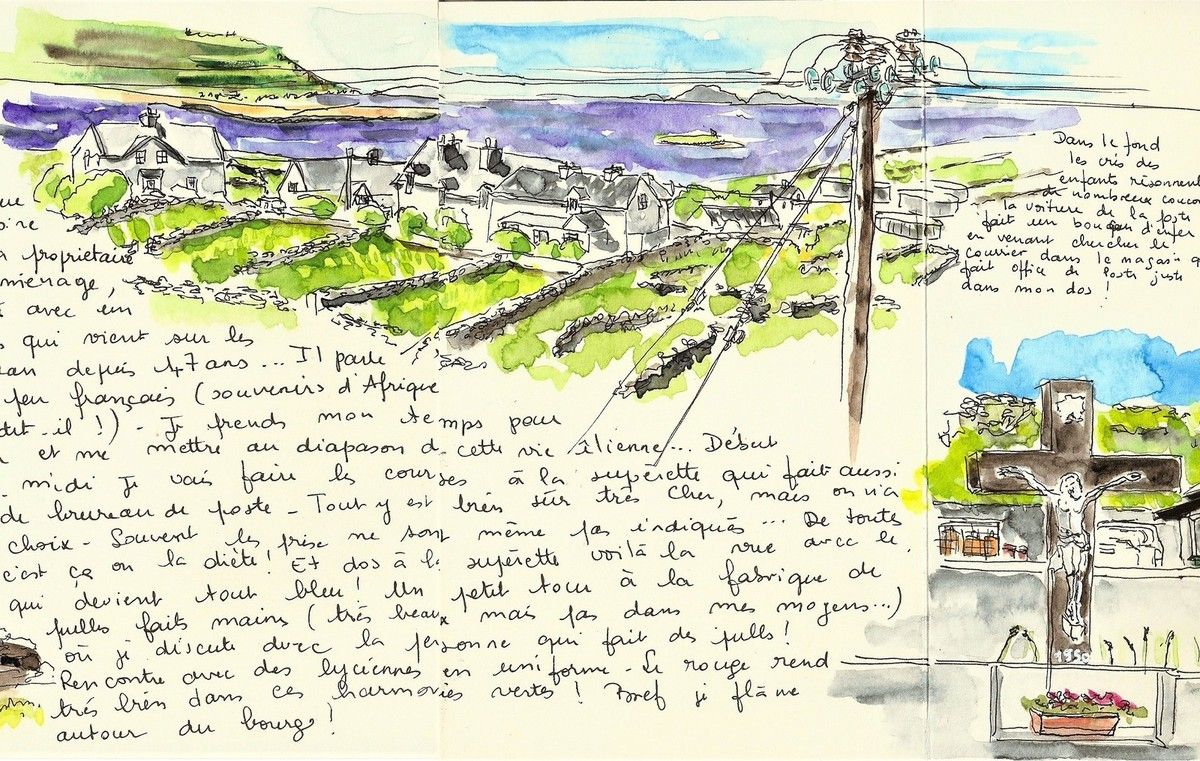 que
oire
a propriétaire
ménage,
t avec un
s qui vient sur les
ean depuis 47 ans... Il parle
peu français (souvenirs d'Afrique
dit-il !) - Je prends mon temps pour
et me mettre au diapason de cette vie îlienne... Début
midi je vais faire les courses à la supérette qui fait aussi
de bureau de poste - Tout y est bien sûr très cher, mais on n'a
choix - Souvent les prix ne sont même pas indiqués... De toutes
c'est ça ou la diète ! Et dos à la supérette voilà la vue avec le
qui devient tout bleu ! Un petit tour à la fabrique de
pulls faits mains (très beaux mais pas dans mes moyens...)
où je discute avec la personne qui fait des pulls !
Rencontre avec des lycéennes en uniforme - Le rouge rend
très bien dans ces harmonies vertes ! Bref je flâne
autour du bourg !
Dans le fond
les cris des
enfants résonnent
de nombreux coucou
la voiture de la poste
fait un boucan d'enfer
en venant chercher le
courrier dans le magasin q
fait office de Poste juste
dans mon dos !
1950